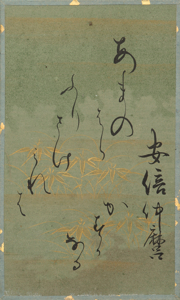 安倍仲麿
あまの
はら
ふり
さけ
みれ
は
かすか
なる